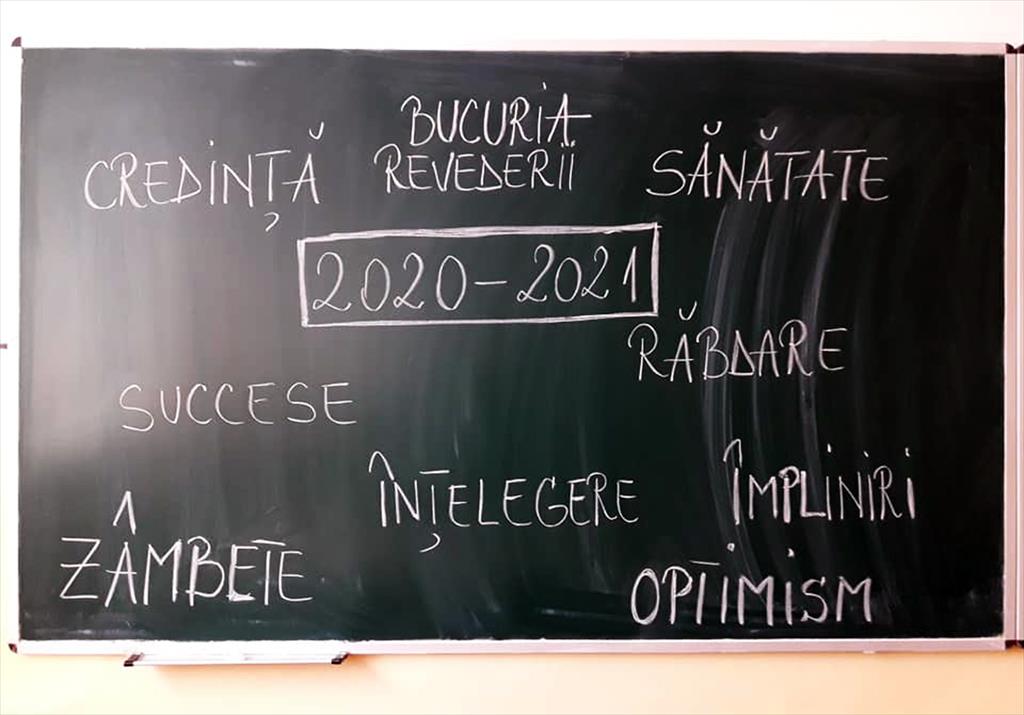 BUCURIA
REVEDERII
CREDINȚĂ
SĂNĂTATE
2020-2021
RĂBDARE
SUCCESE
ÎNȚELEGERE
ÎMPLINIRI
ZÂMBETE
OPTIMISM